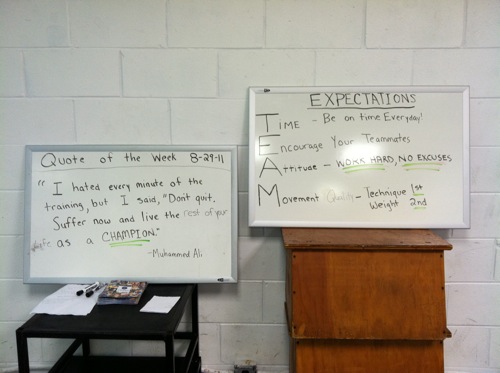 Quote of the Week 8-29-11
"I hated every minute of the
training, but I said, "Don't quit.
Suffer now and live the rest of your
life as a CHAMPION."
-Muhammed Ali
EXPECTATIONS
TIME - Be on time Everyday!
Encourage Your Teammates
Attitude - WORK HARD, NO EXCUSES
Movement Quality - Technique 1st
Weight 2nd